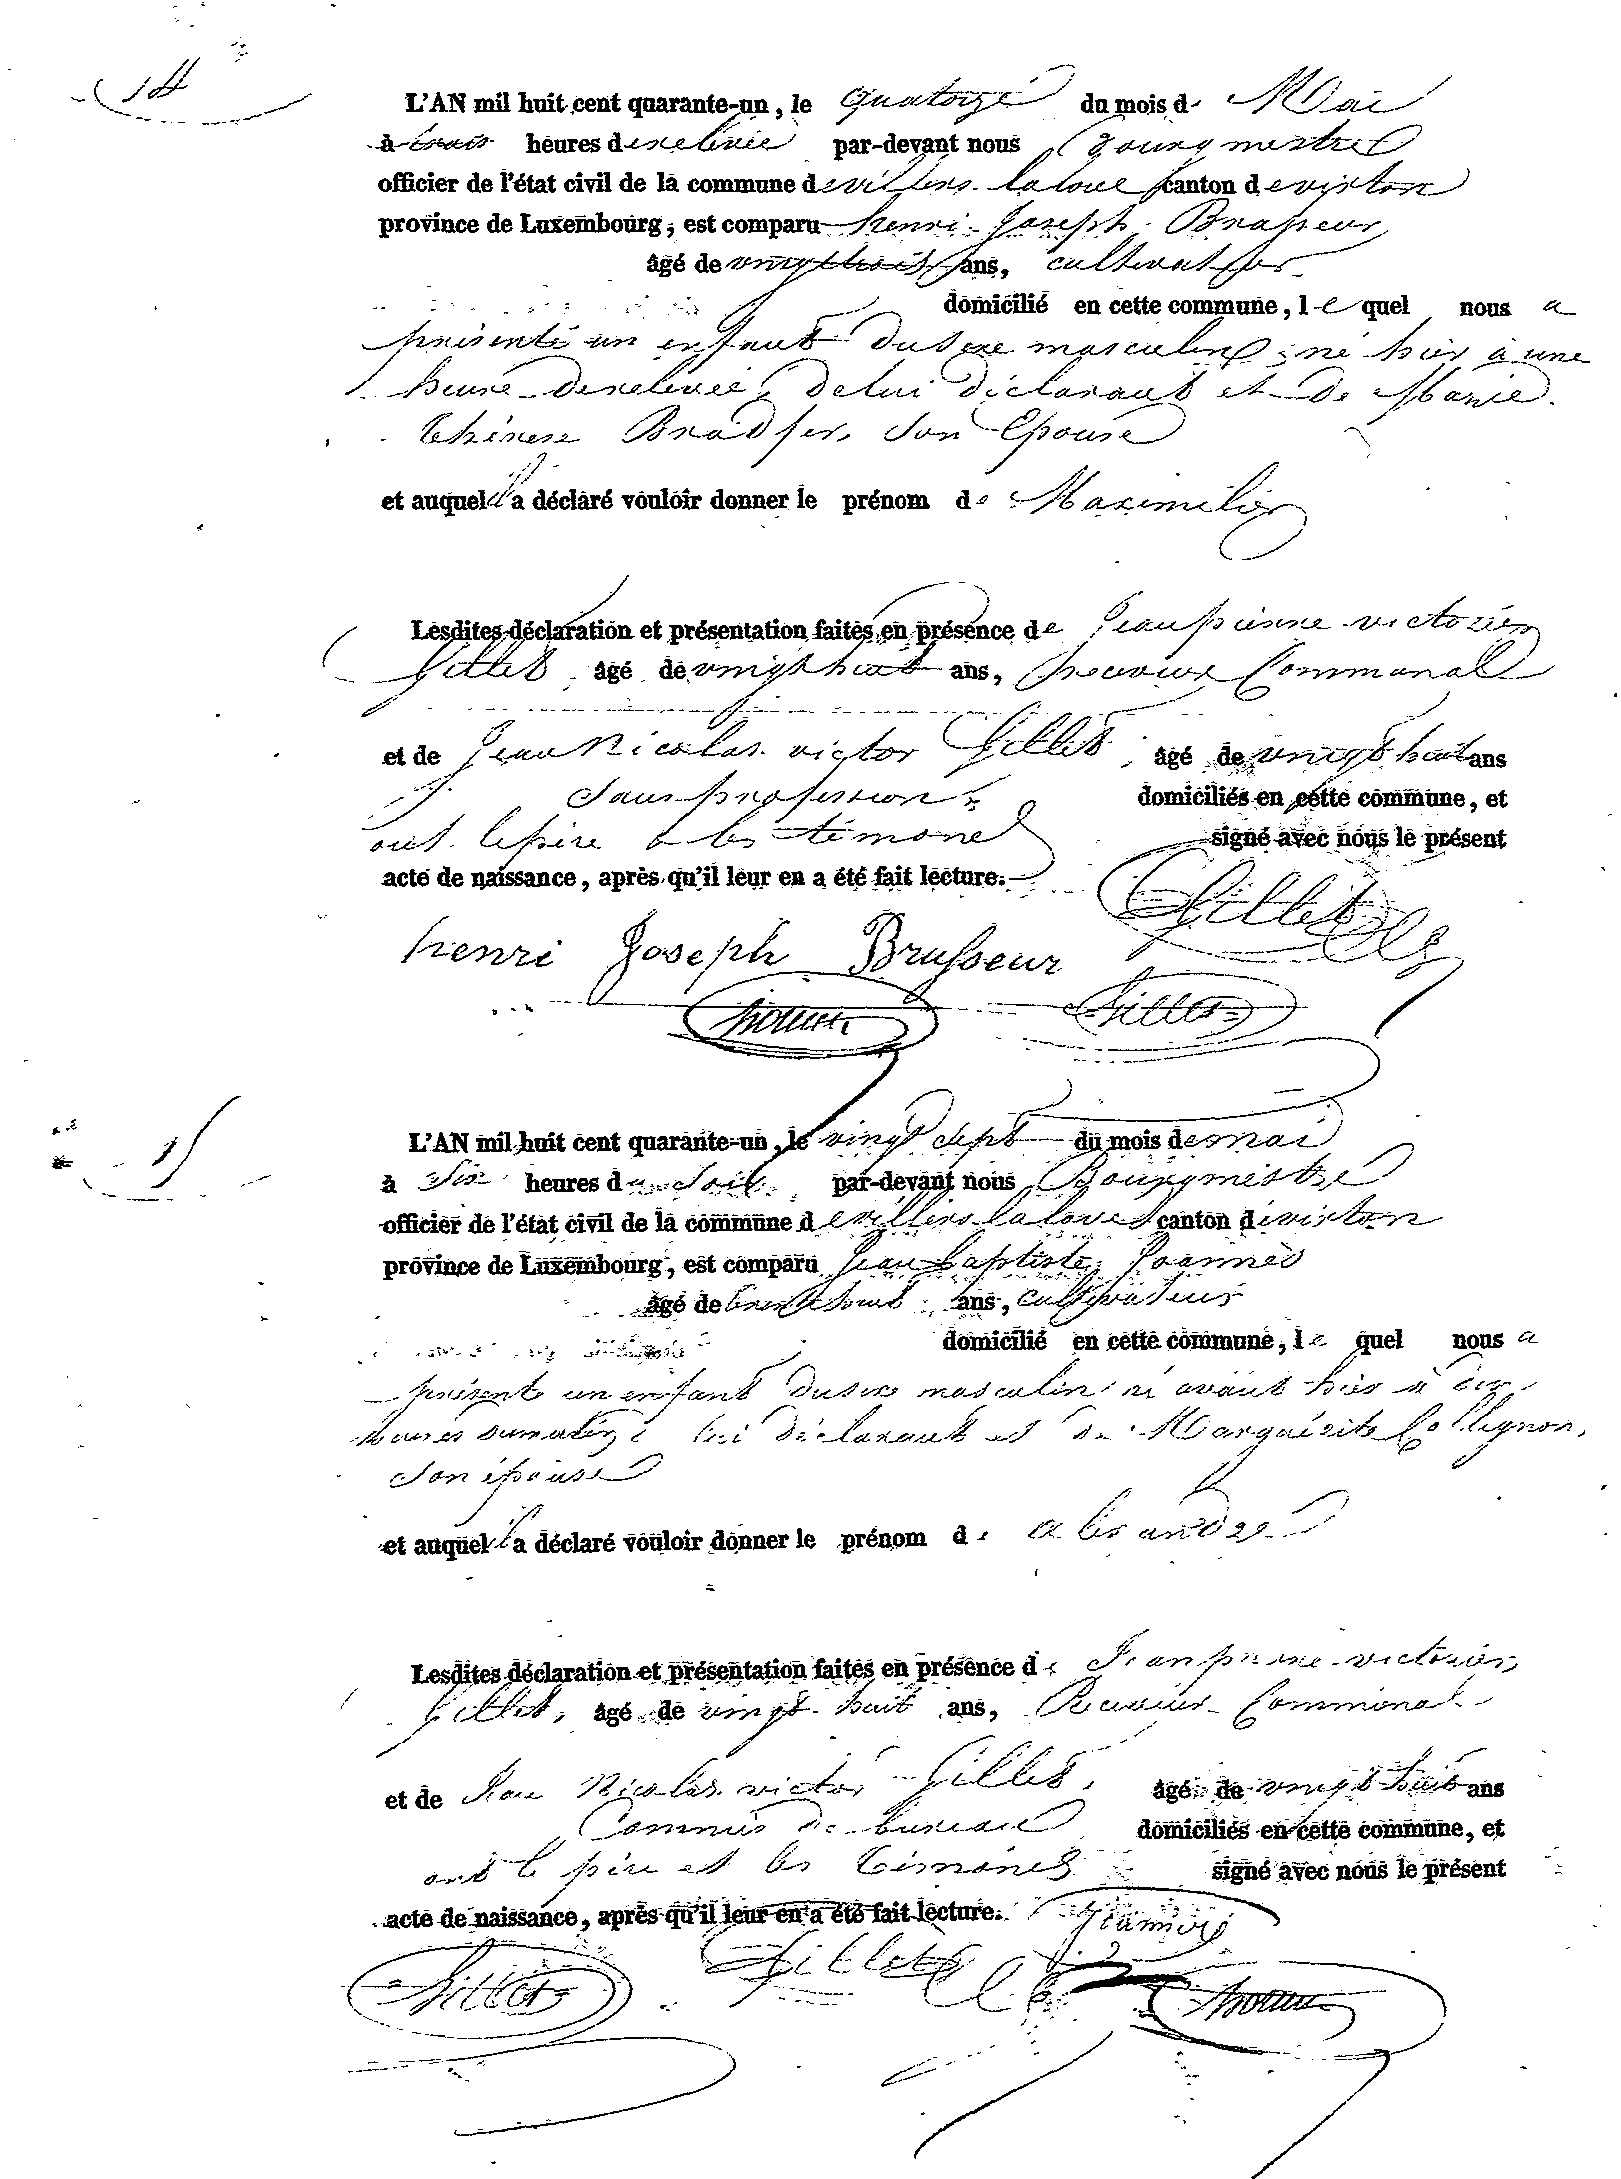 14
L'AN mil huit cent quarante-un, le quatorze du mois de Mai
à trois heures de relevée par-devant nous Bourgmestre
officier de l'état civil de la commune de villers la loue canton de virton
province de Luxembourg, est comparu henri Joseph Brasseur
âgé de vingt trois ans, cultivateur
domicilié en cette commune, le quel nous a
présenté un enfant du sexe masculin, né hier à une
heure de relevée, de lui déclarant et de Marie
thérèse Bradfer, son Epouse
et auquel il a déclaré vouloir donner le prénom de Maximilien
Lesdites déclaration et présentation faites en présence de Jean pierre victorien
Gillet âgé de vingt huit ans, receveur Communal
et de Jean Nicolas victor Gillet, âgé de vingt huit ans
Sans profession domiciliés en cette commune, et
ont le père & les témoins signé avec nous le présent
acte de naissance, après qu'il leur en a été fait lecture.
Gillet
henri Joseph Brasseur
Gillet
15
L'AN mil huit cent quarante-un, le vingt sept du mois de mai
à Six heures du Soir par-devant nous Bourgmestre
officier de l'état civil de la commune de villers la loue canton de virton
province de Luxembourg, est comparu Jean Baptiste Joannès
âgé de ans, cultivateur
domicilié en cette commune, le quel nous a
présenté un enfant du sexe masculin né avant hier à dix
heures du matin, lui déclarant et de Marguérite Collignon,
Son épouse
et auquel il a déclaré vouloir donner le prénom de alexandre
Lesdites déclaration et présentation faites en présence de Jean pierre victorien
Gillet, âgé de vingt huit ans, Receveur Communal
et de Jean Nicolas victor Gillet, âgé de vingt huit ans
Commis de bureau domiciliés en cette commune, et
ont le père et les témoins signé avec nous le présent
acte de naissance, après qu'il leur en a été fait lecture.
Gillet Gillet